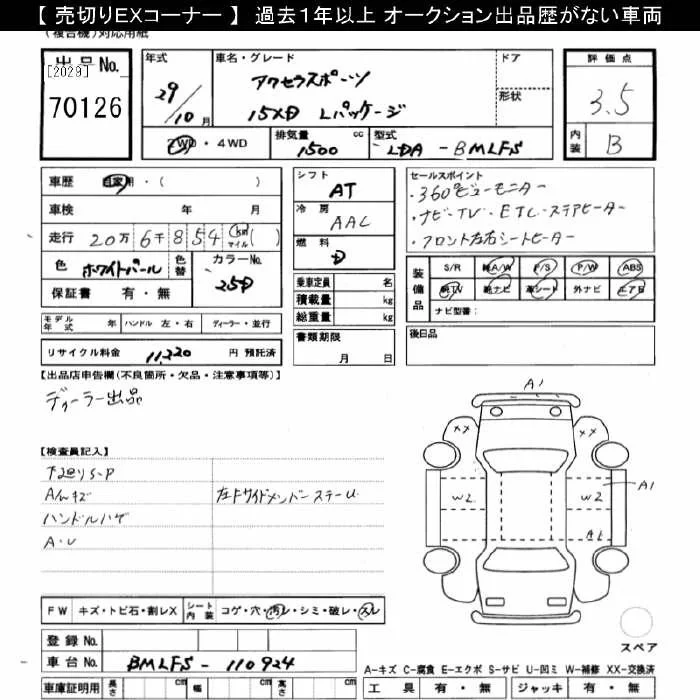 【 売切りEXコーナー 】 過去１年以上 オークション出品歴がない車両
(複合機)対応用紙
出品No.
[2029]
70126
年式
29/10月
車名・グレード
アクセラスポーツ
15XD Lパッケージ
ドア
形状
評価点
3.5
内装
B
2WD・4WD
排気量
1500 cc
型式
LDA - BMLFS
車歴 自家用・( )
車検 年 月
走行 20万6千854 km マイル ( )
色 ホワイトパール 色替 カラーNo. 25D
保証書 有・無
シフト
AT
冷房
AAC
燃料
D
乗車定員 名
積載量 kg
総重量 kg
セールスポイント
・360°ビューモニター
・ナビ・TV・ETC・ステアヒーター
・フロント左右シートヒーター
装備品
S/R 純A/W P/S P/W ABS
純TV 純ナビ 革シート 外ナビ エアB
ナビ型番：
モデル年式 年 ハンドル 左・右 ディーラー・並行
リサイクル料金 11,220 円 預託済
書類期限
月 日
後日品
【出品店申告欄(不良箇所・欠品・注意事項等)】
ディーラー出品
【検査員記入】
下廻りS-P
A/Wキズ
左Fサイドメンバーステー U
ハンドルハゲ
A・U
A1
XX XX
W2 W2 A1
A1
スペア
FW キズ・トビ石・割レX シート内装 コゲ・穴・汚レ・シミ・破レ・スレ
登録No.
車台No. BMLFS - 110924
A-キズ C-腐食 E-エクボ S-サビ U-凹ミ W-補修 XX-交換済
車庫証明用 長さ cm 幅 cm 高さ cm
工具 有・無 ジャッキ 有・無